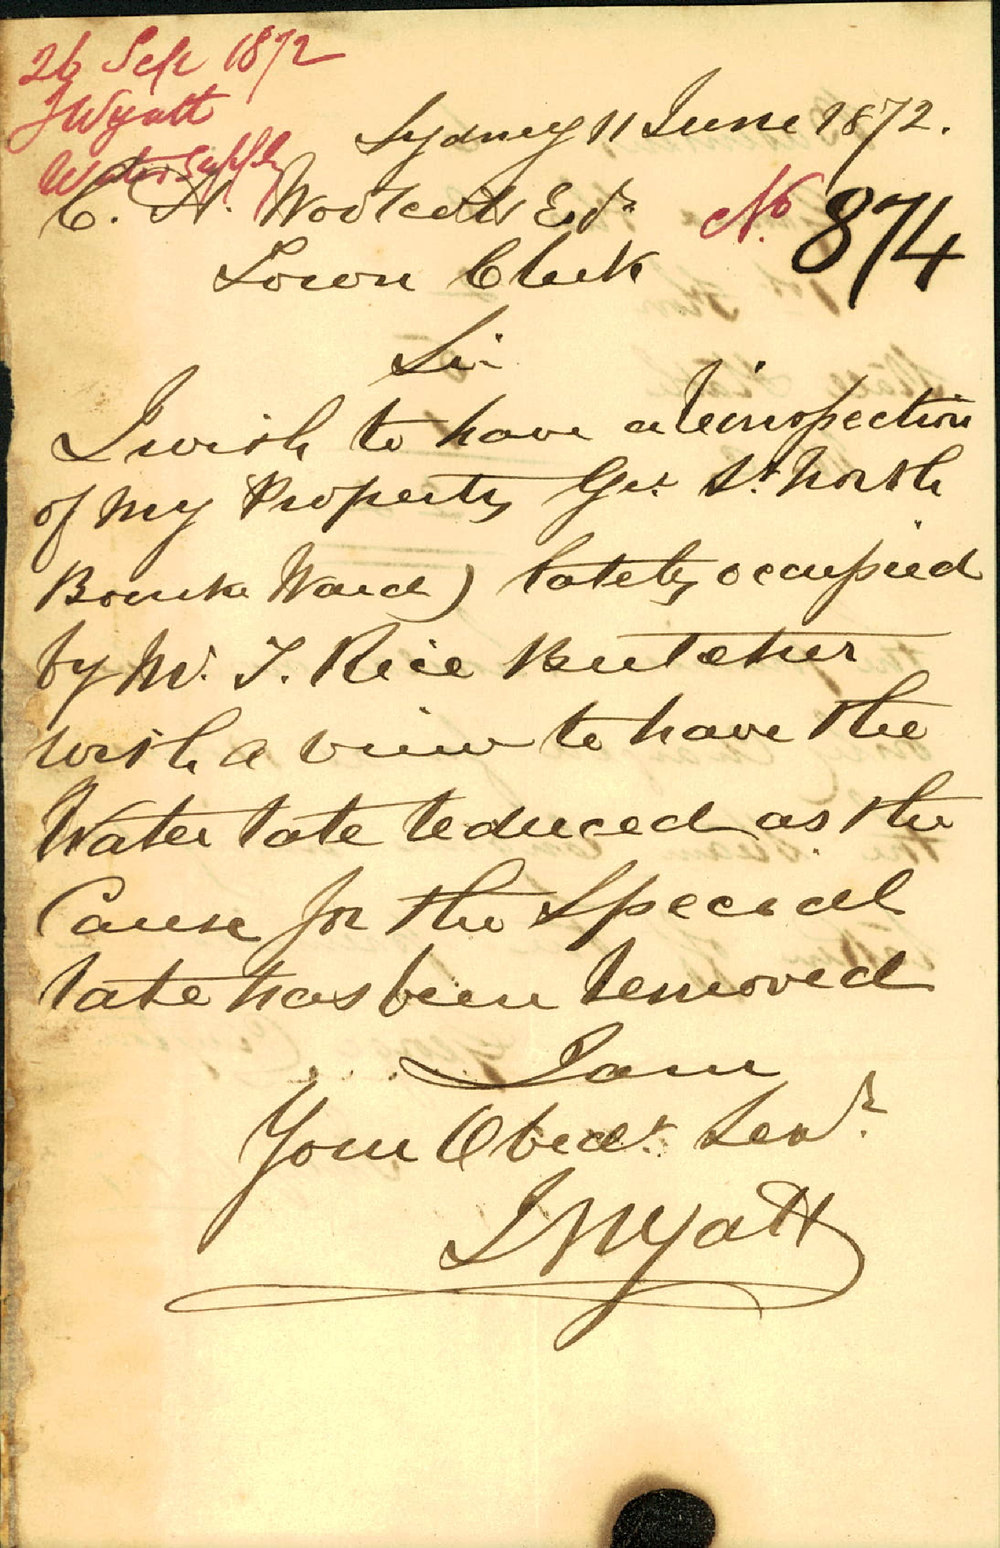 26 Sept 1872
J Wyatt
Water Supply
Sydney 11 June 1872.
C. H. Woolcott Esqr
No. 874
Town Clerk
Sir
I wish to have a reinspection
of my Property Geo. St. North
Bourke Ward) lately occupied
by Mr. T. Rice Butcher
with a view to have the
Water rate reduced as the
Cause for the Special
rate has been removed
I am
Your Obedt. Servt.
J Wyatt